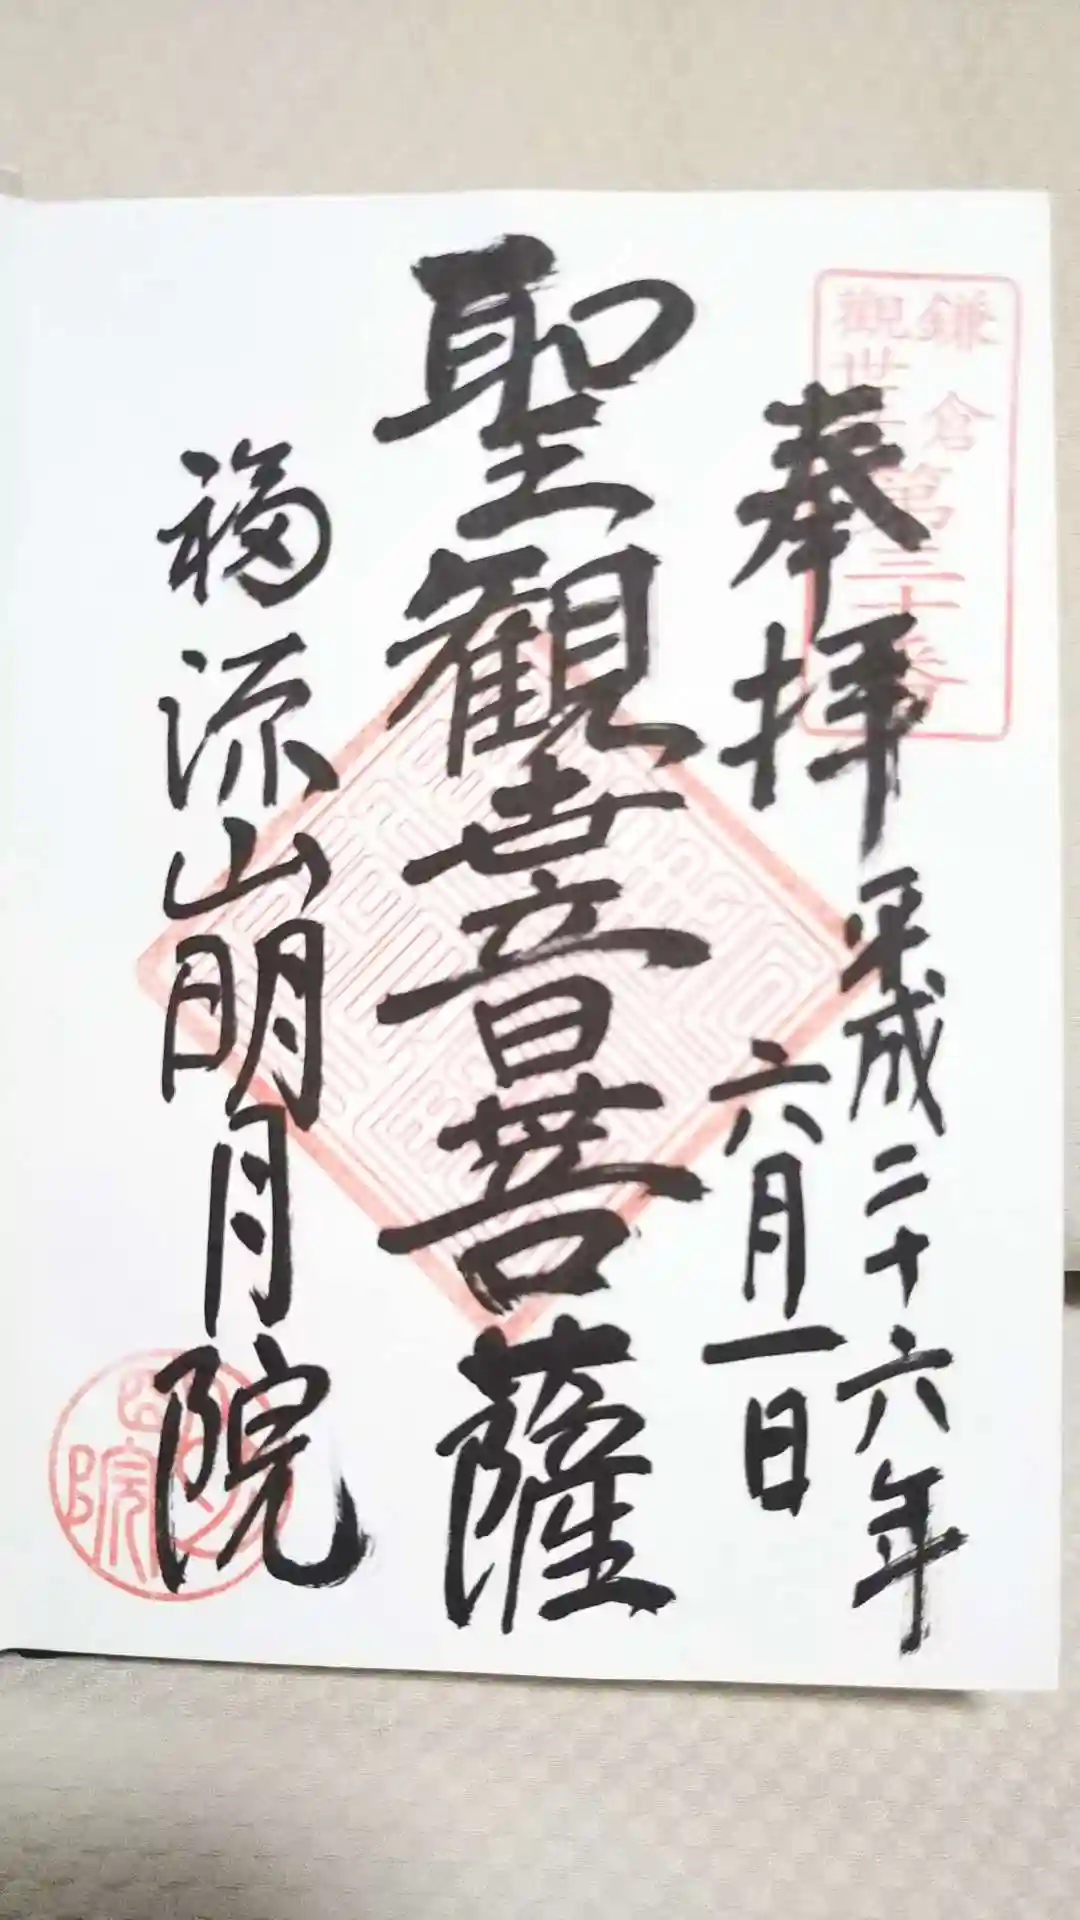 鎌倉
觀世音第三十番
奉拝
平成二十六年
六月一日
聖觀世音菩薩
福源山明月院
院